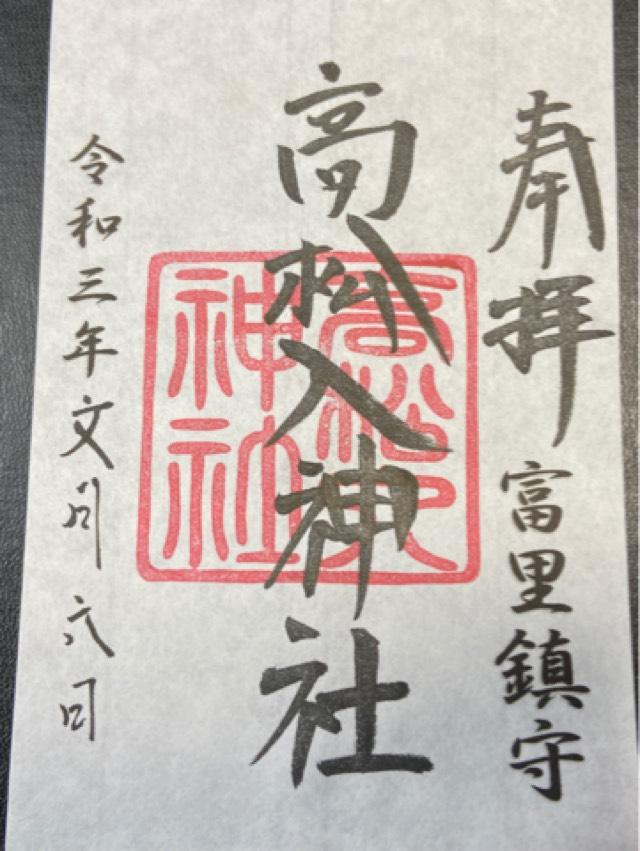 奉拝 富里鎮守
高松入神社
高松入神社
令和三年文月六日